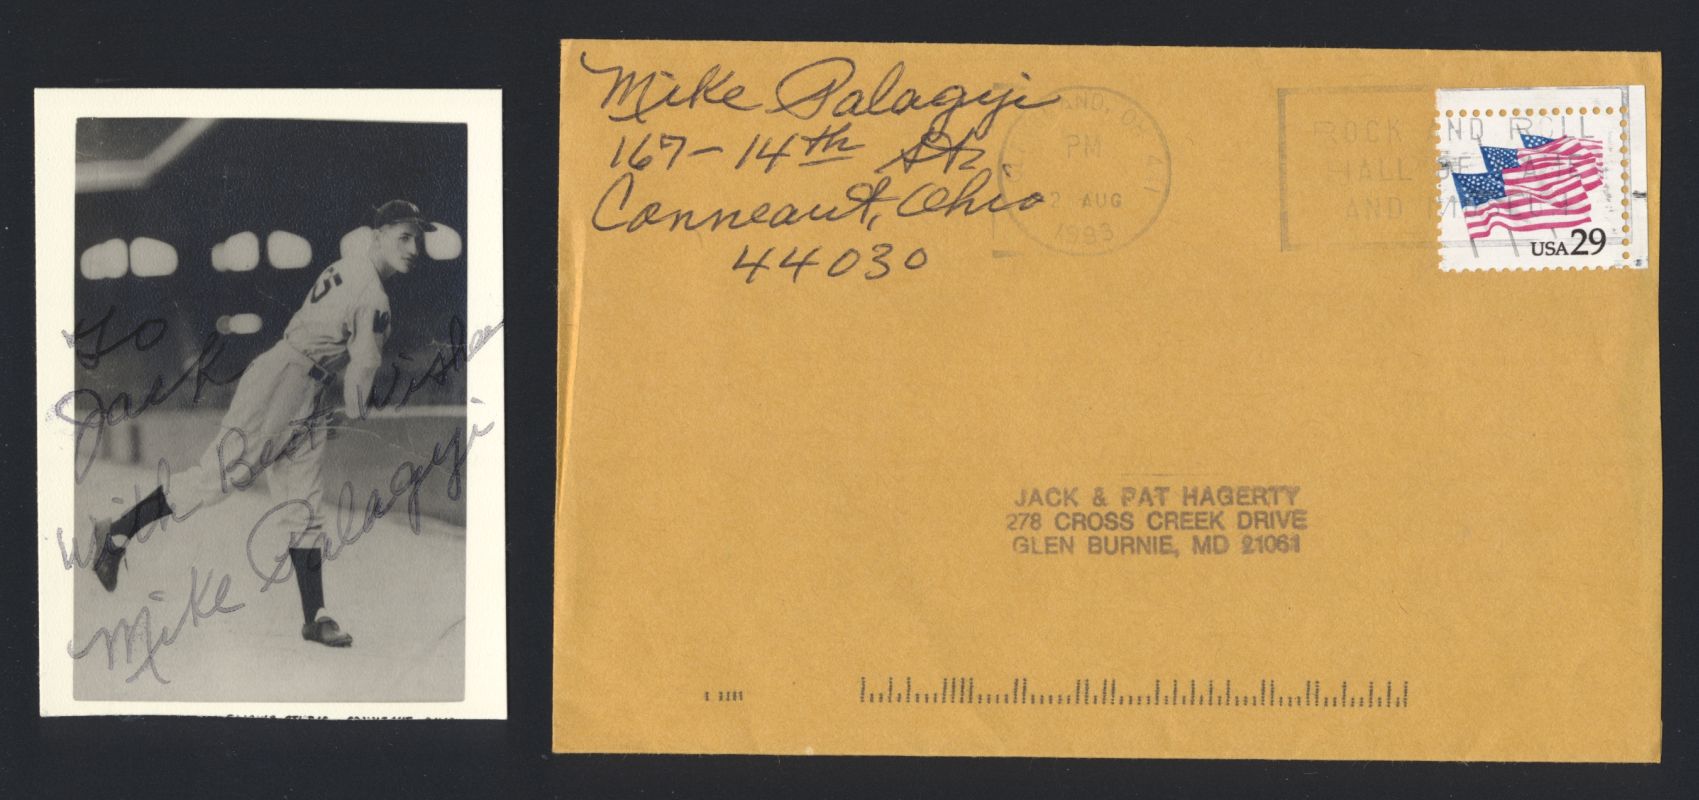 To
Jack
With Best Wishes
Mike Palagyi
5
Mike Palagyi
167-14th St.
Conneaut, Ohio
44030
AND, OH 441
PM
2 AUG
1993
ROCK AND ROLL
HALL OF FAME
AND MUSEUM
USA 29
JACK & PAT HAGERTY
278 CROSS CREEK DRIVE
GLEN BURNIE, MD 21061